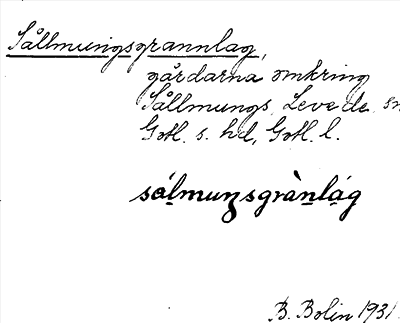 Sållmungsgrannlag,
gårdarna omkring
Sållmungs, Levede sn
Gotl. s. hd, Gotl. l.
sålmuŋsgrànlág
B. Bolin 1931.